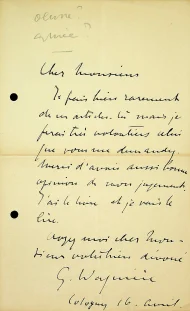 Cher Monsieur
Je fais bien rarement
des articles. Là mais je
ferai très volontiers celui
que vous me demandez
Merci d'avoir aussi bonne
opinion de mon jugement.
J'ai le livre et je vais le
lire.
Croyez moi cher Mon-
sieur volontiers dévoué
G. Wagnière
Cologny 16 avril